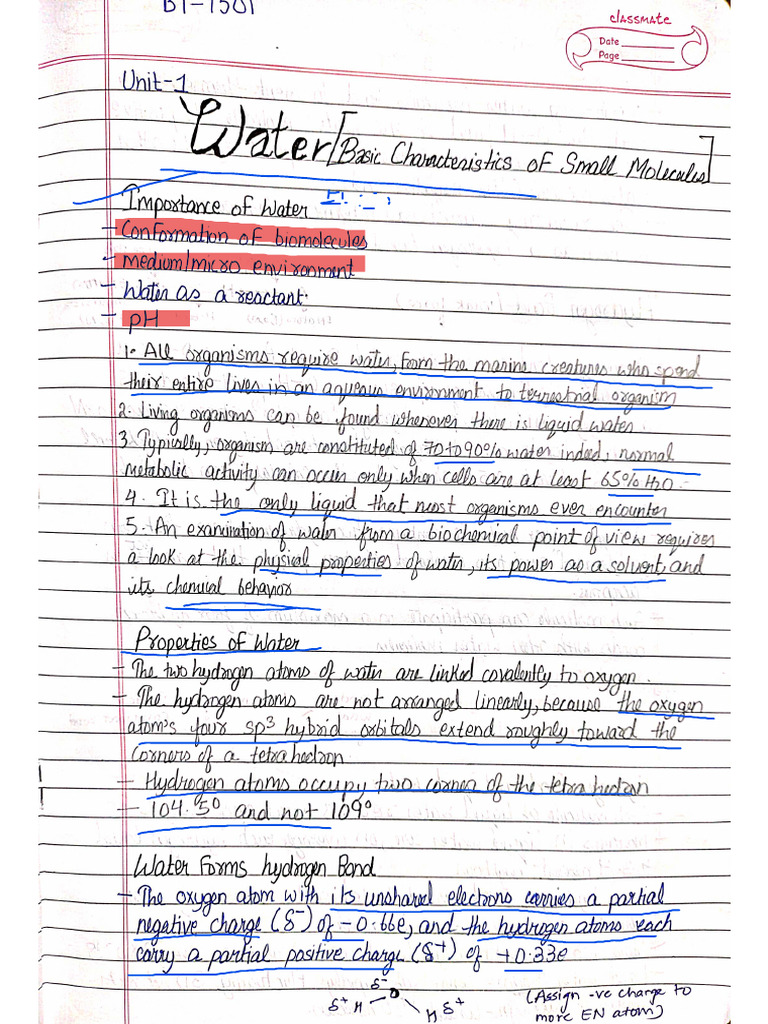 BT-1501
classmate
Date
Page
Unit-1
Water [Basic Characteristics of Small Molecules]
Importance of Water
- Conformation of biomolecules
- Medium/micro environment
- Water as a reactant.
- pH
1. All organisms require water, from the marine creatures who spend
their entire lives in an aqueous environment to terrestrial organism
2. Living organisms can be found whenever there is liquid water.
3. Typically, organism are constituted of 70 to 90% water indeed, normal
metabolic activity can occur only when cells are at least 65% H2O.
4. It is the only liquid that most organisms ever encounter
5. An examination of water from a biochemical point of view requires
a look at the physical properties of water, its power as a solvent, and
its chemical behavior
Properties of Water
- The two hydrogen atoms of water are linked covalently to oxygen.
- The hydrogen atoms are not arranged linearly, because the oxygen
atom's four sp3 hybrid orbitals extend roughly toward the
Corners of a tetrahedron
- Hydrogen atoms occupy two corner of the tetrahedron
- 104.5° and not 109°
Water Forms hydrogen Bond
- The oxygen atom with its unshared electrons carries a partial
negative charge (δ-) of -0.66e, and the hydrogen atoms each
carry a partial positive charge (δ+) of +0.33e
δ-
δ+ H - O - H δ+
(Assign -ve charge to
more EN atom)